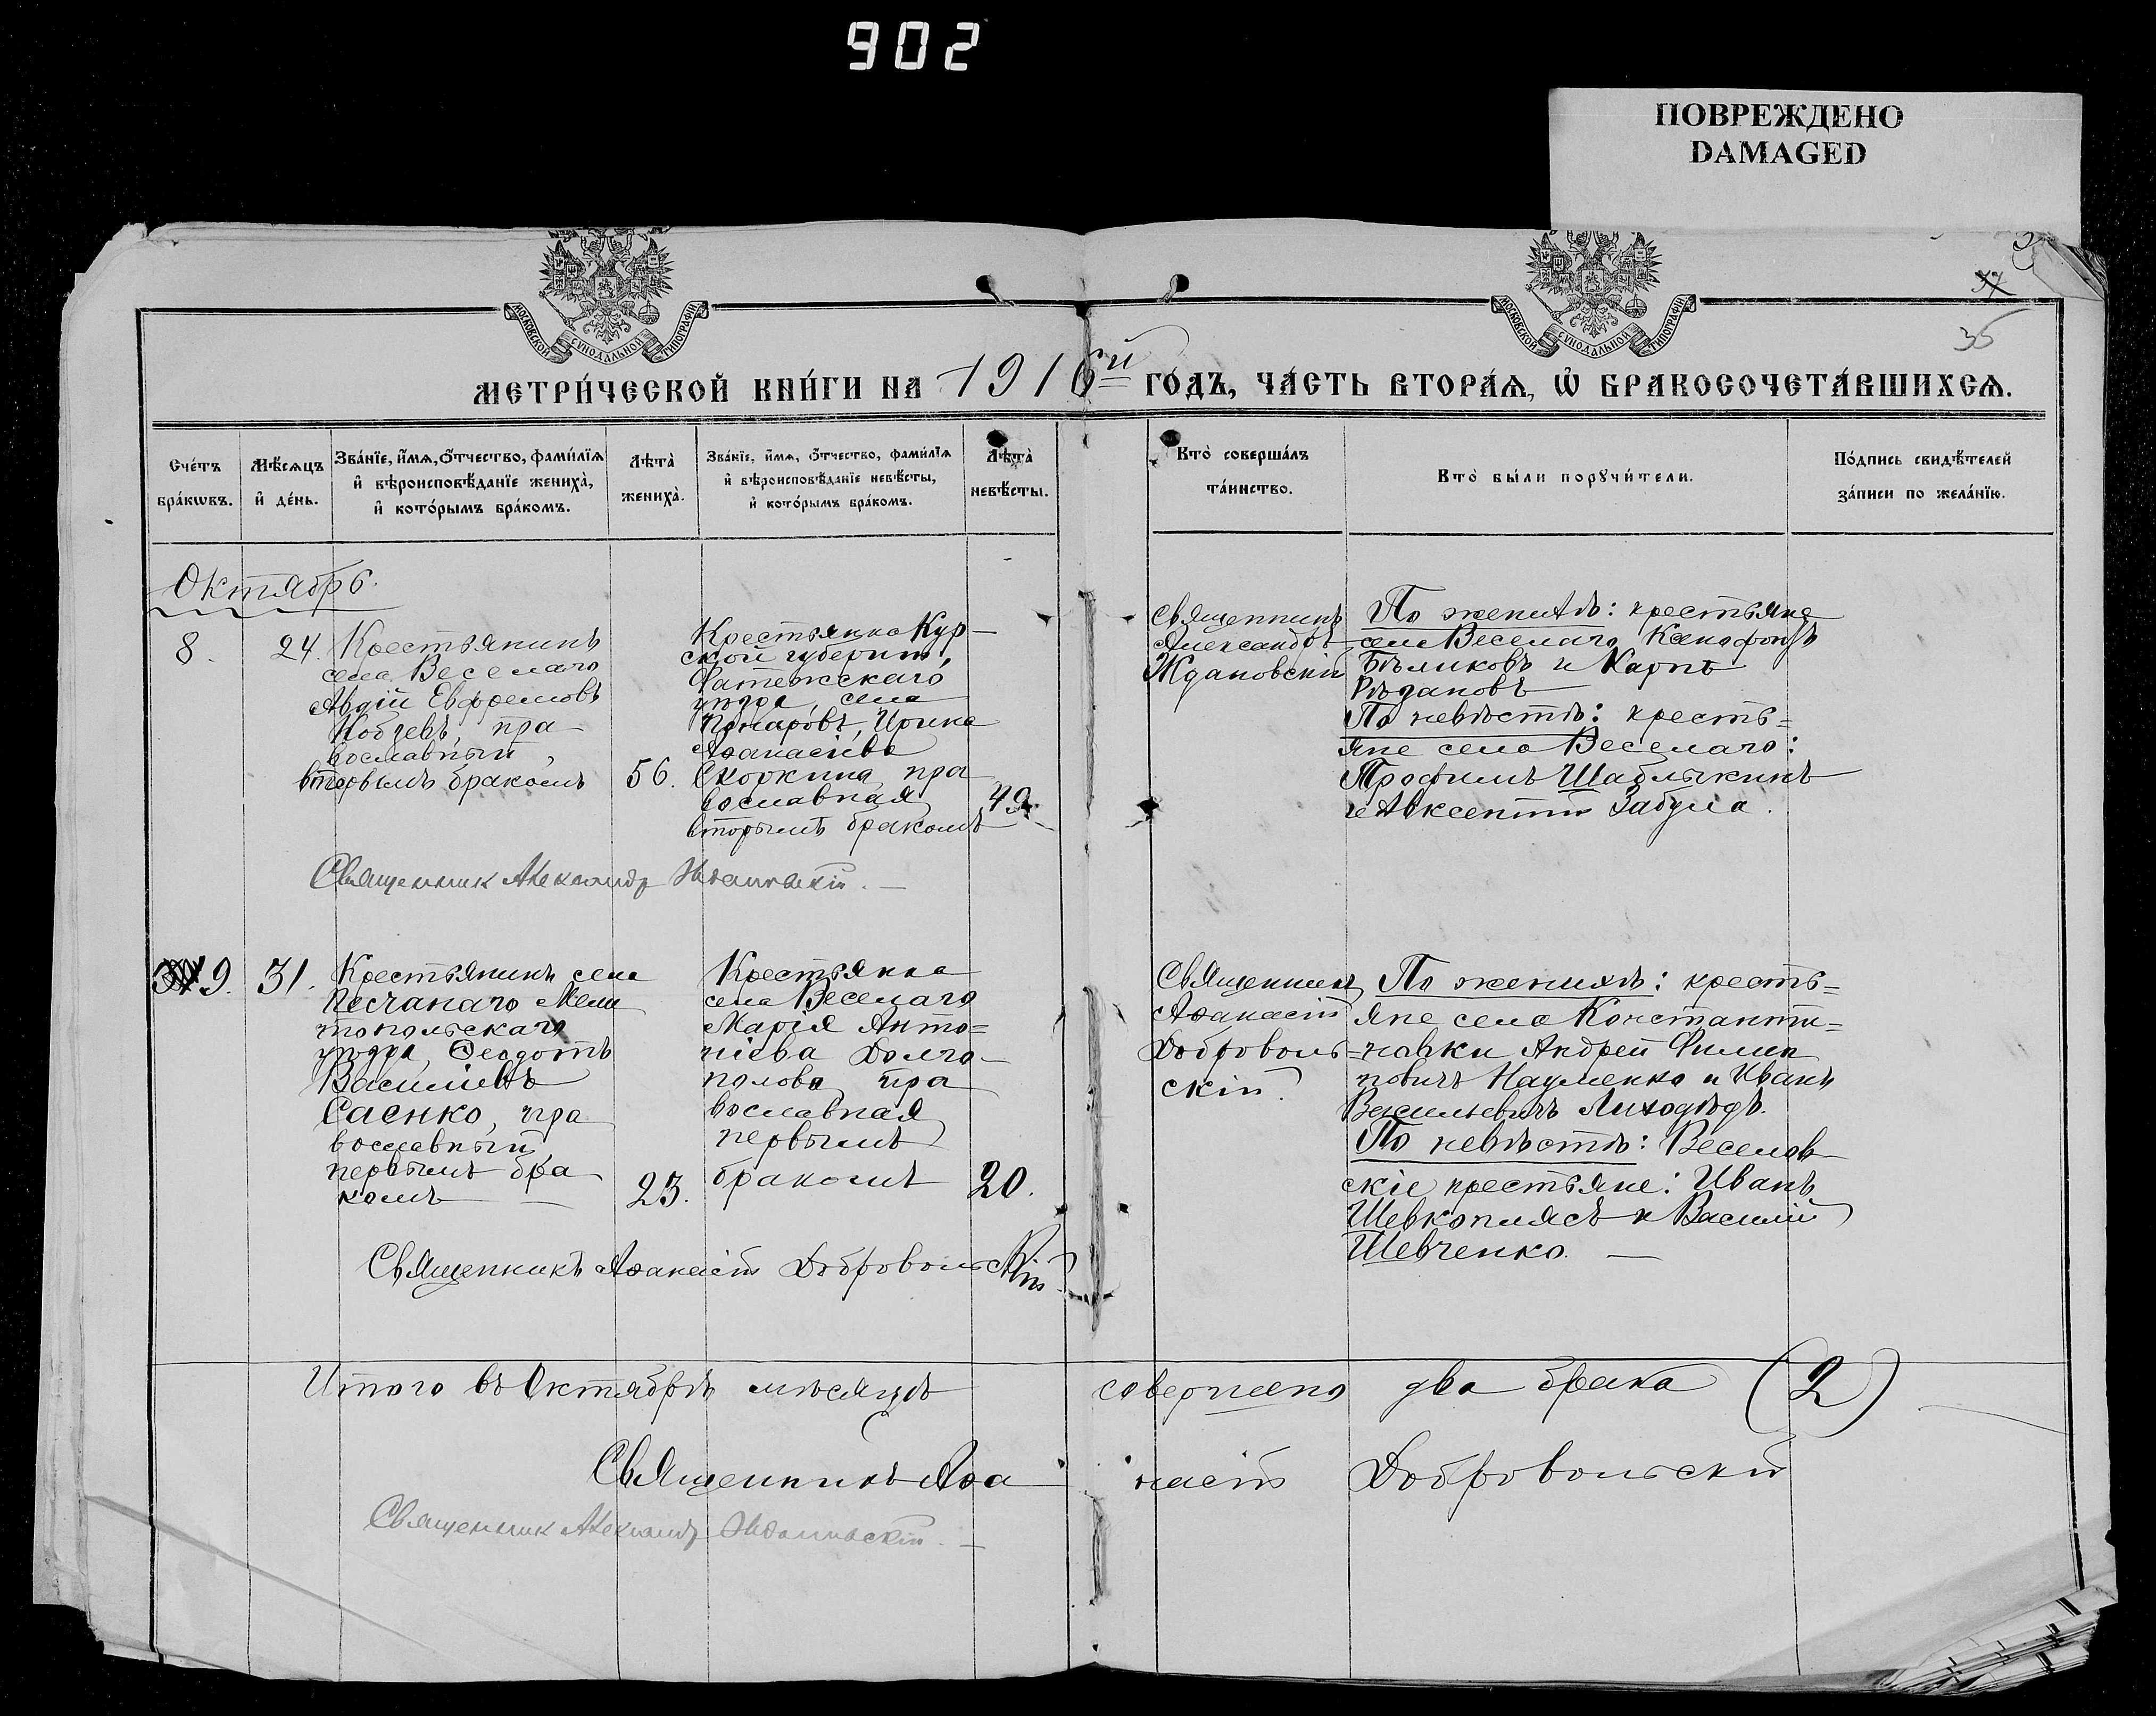 902
ПОВРЕЖДЕНО
DAMAGED
МОСКОВСКОЙ СѴНОДАЛЬНОЙ ТИПОГРАФІИ
МОСКОВСКОЙ СѴНОДАЛЬНОЙ ТИПОГРАФІИ
35
МЕТРИ́ЧЕСКОЙ КНИ́ГИ НА 1916й ГОДЪ, ЧА́СТЬ ВТОРА́Ѧ, Ѡ҆ БРАКОСОЧЕТА́ВШИХСѦ.
Сче́тъ бра́кѡвъ.
Мѣ́сѧцъ и҆ де́нь.
Зва́нїе, и҆́мѧ, ѻ҆́тчество, фами́лїѧ и҆ вѣроисповѣ́данїе жениха̀, и҆ кото́рымъ бра́комъ.
Лѣта̀ жениха̀.
Зва́нїе, и҆́мѧ, ѻ҆́тчество, фами́лїѧ и҆ вѣроисповѣ́данїе невѣ́сты, и҆ кото́рымъ бра́комъ.
Лѣта̀ невѣ́сты.
Кто̀ соверша́лъ та́инство.
Кто̀ бы́ли порꙋчи́тели.
По́дпись свидѣ́телей за́писи по жела́нїю.
Октябрь.
8.
24.
Крестьянинъ
села Веселаго
Авдій Евфремовъ
Кобзевъ, пра-
вославный,
вторымъ бракомъ
56.
Крестьянка Кур-
ской губерніи,
Фатежскаго
уѣзда, села
Ирина
Аѳанасіева
Скоркина, пра
вославная
вторымъ бракомъ
49.
Священникъ
Александръ
Ждановскій
По женихѣ: крестьяне
села Веселаго, Ксенофонтъ
Бѣликовъ и Карпъ
По невѣстѣ: кресть=
яне села Веселаго:
Трофимъ Шаблыкинъ
и Авксентій Забула.
Священник Александр Ждановскій. —
9.
31.
Крестьянинъ села
Песчанаго Мели
топольскаго
уѣзда, Ѳеодотъ
Васильевъ
Саенко, пра
вославный
первымъ бра
комъ —
23.
Крестьянка
села Веселаго
Марія Анто=
ніева Долго-
полова пра
вославная
первымъ
бракомъ
20.
Священникъ
Аѳанасій
Доброволь=
скій.
По женихѣ: кресть=
яне села Константи=
новки Андрей Филип
повичъ Науменко и Иванъ
Васильевичъ Лиходѣдъ.
По невѣстѣ: Веселов
скіе крестьяне: Иванъ
Шевкоплясъ и Василій
Шевченко. —
Священникъ Аѳанасій Добровольскій
Итого въ Октябрѣ мѣсяцѣ совершено два брака (2)
Священникъ Аѳанасій Добровольскій
Священник Александр Ждановскій. —